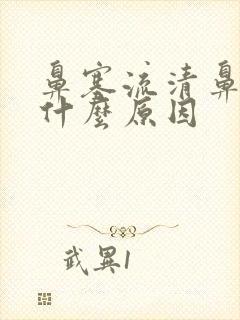 鼻塞流清鼻
什麼原因
武異1